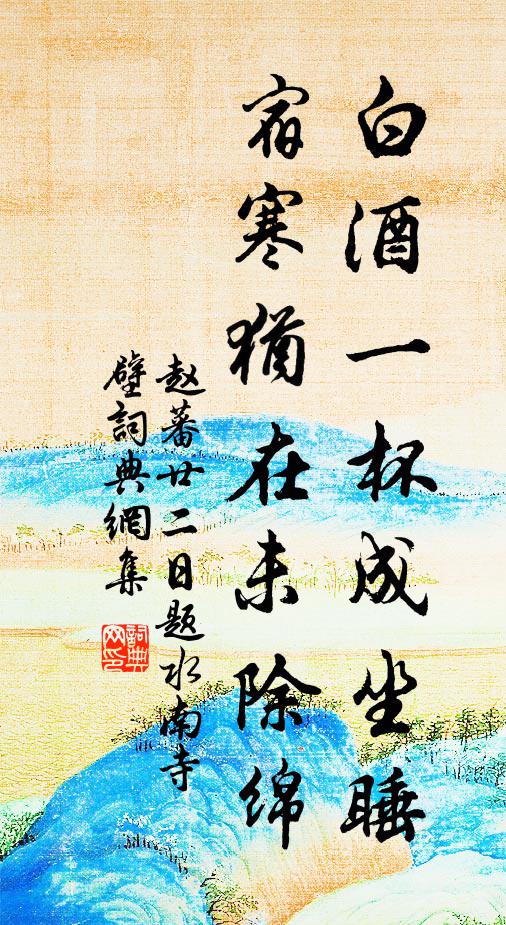 白酒一杯成坐睡
宿寒猶在未除綿
赵蕃廿二日题水南寺
壁詞典網集
詞典
网印